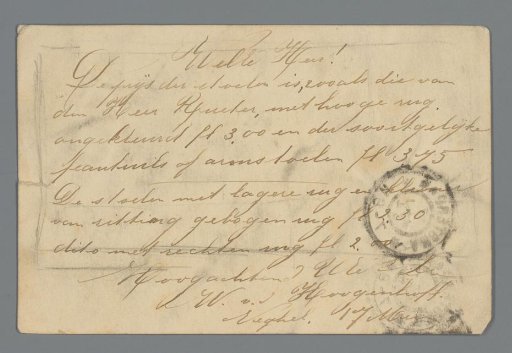 WelEd. Heer!
De prijs der stoelen is, zooals die van
den Heer Kuiter, met hooge rug,
ongekleurd fl 3,00 en der soortgelijke
feauteuils of armstoelen fl 3,75
De stoelen met lagere rug en
van zitting gebogen rug fl 3.30
dito met rechten rug fl 2.
Hoogachtend UEd
W. v. d. Hoogenhoff.
Veghel. 17